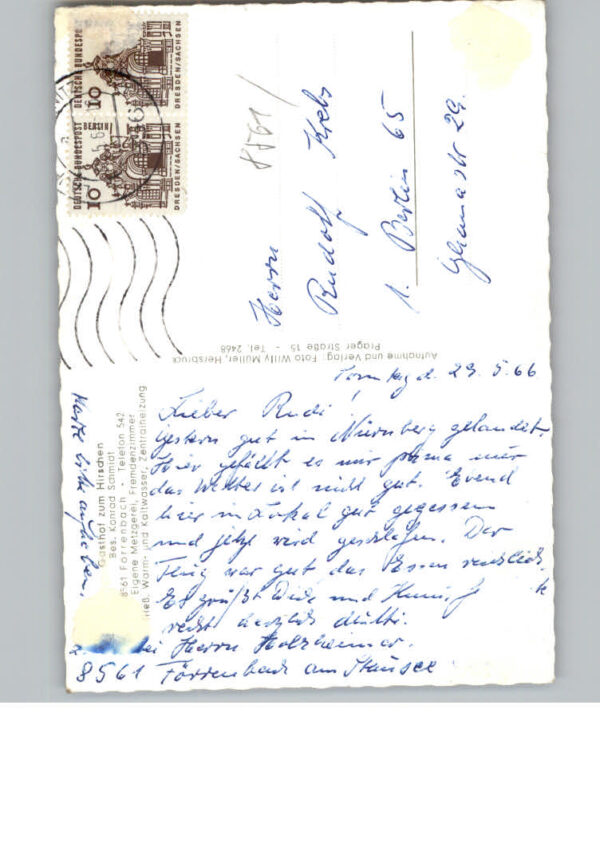 DEUTSCHE BUNDESPOST BERLIN
10
DRESDEN/SACHSEN
DEUTSCHE BUNDESPOST
10
DRESDEN/SACHSEN
8561/
Herrn
Rudolf Krebs
1. Berlin 65
Ghanastr 29.
Aufnahme und Verlag: Foto Willy Müller, Hersbruck
Prager Straße 15 - Tel. 2468
Gasthof zum Hirschen
Bes. Konrad Schmidt
8561 Förrenbach · Telefon 542
Eigene Metzgerei, Fremdenzimmer
fließ. Warm- und Kaltwasser, Zentralheizung
Karte bitte aufheben.
Sonntag d. 29. 5. 66
Lieber Rudi!
Gestern gut in Nürnberg gelandet.
Hier gefällt es mir prima nur
das Wetter ist nicht gut. Ebend
hier im Lokal gut gegessen
und jetzt wird geschlafen. Der
Flug war gut das Essen reichlich
Es grüßt Dich und
recht herzlich Mutti.
bei Herrn Holzheimer.
8561 Förrenbach am Stausee.